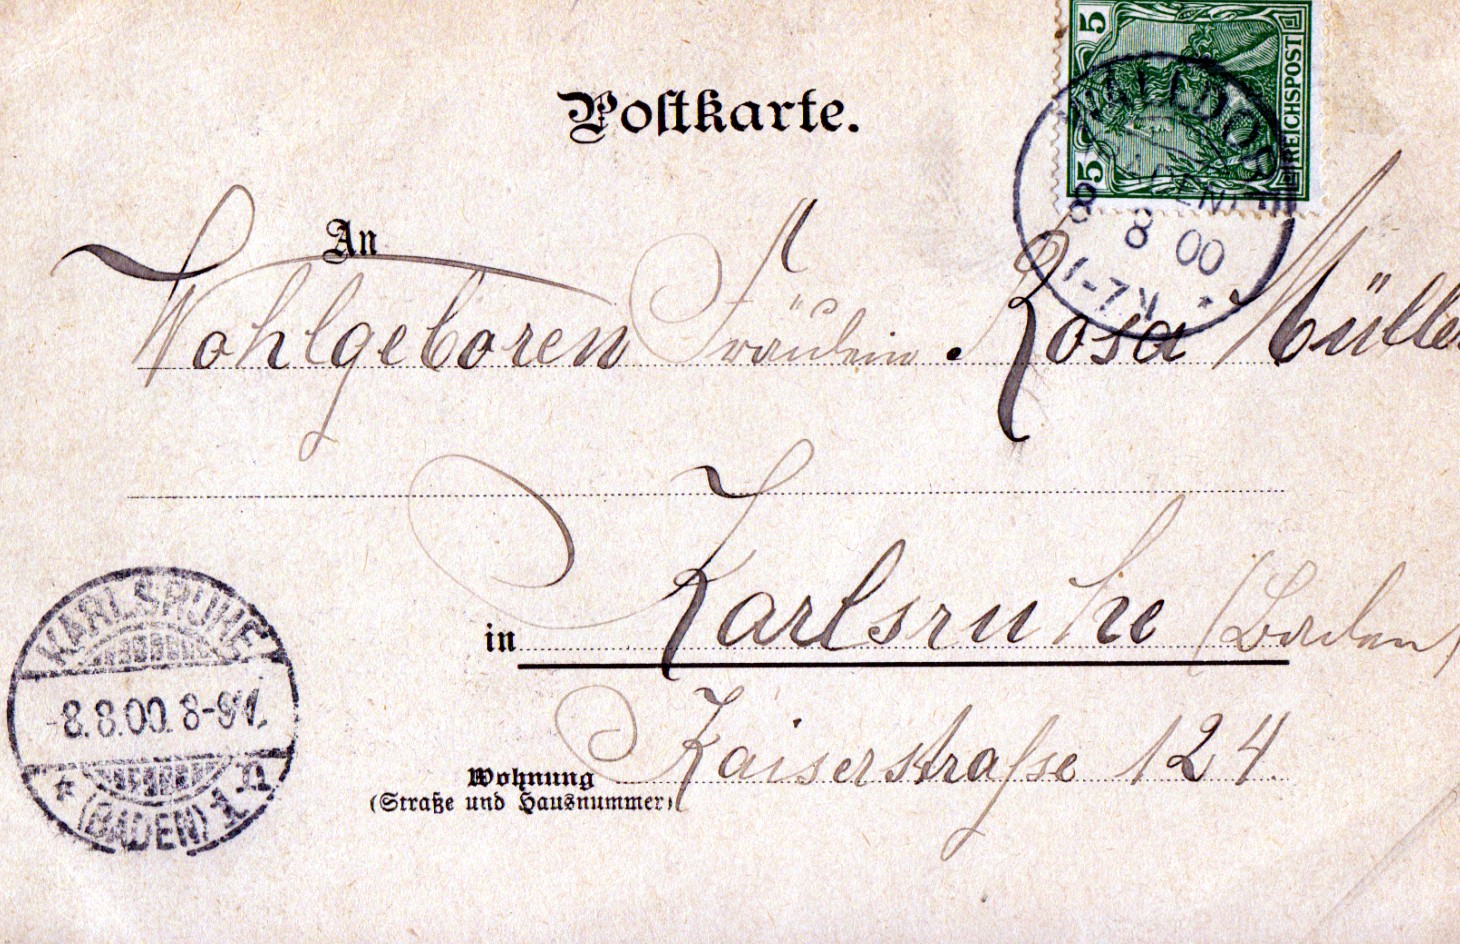 5
REICHSPOST
5
Postkarte.
WALLDORF
8 8 00
1-2 N
An
Wohlgeboren Fräulein Rosa Müller
in Karlsruhe (Baden)
Kaiserstrasse 124.
Wohnung
(Straße und Hausnummer)
KARLSRUHE
8.8.00. 8-9V.
(BADEN) 1